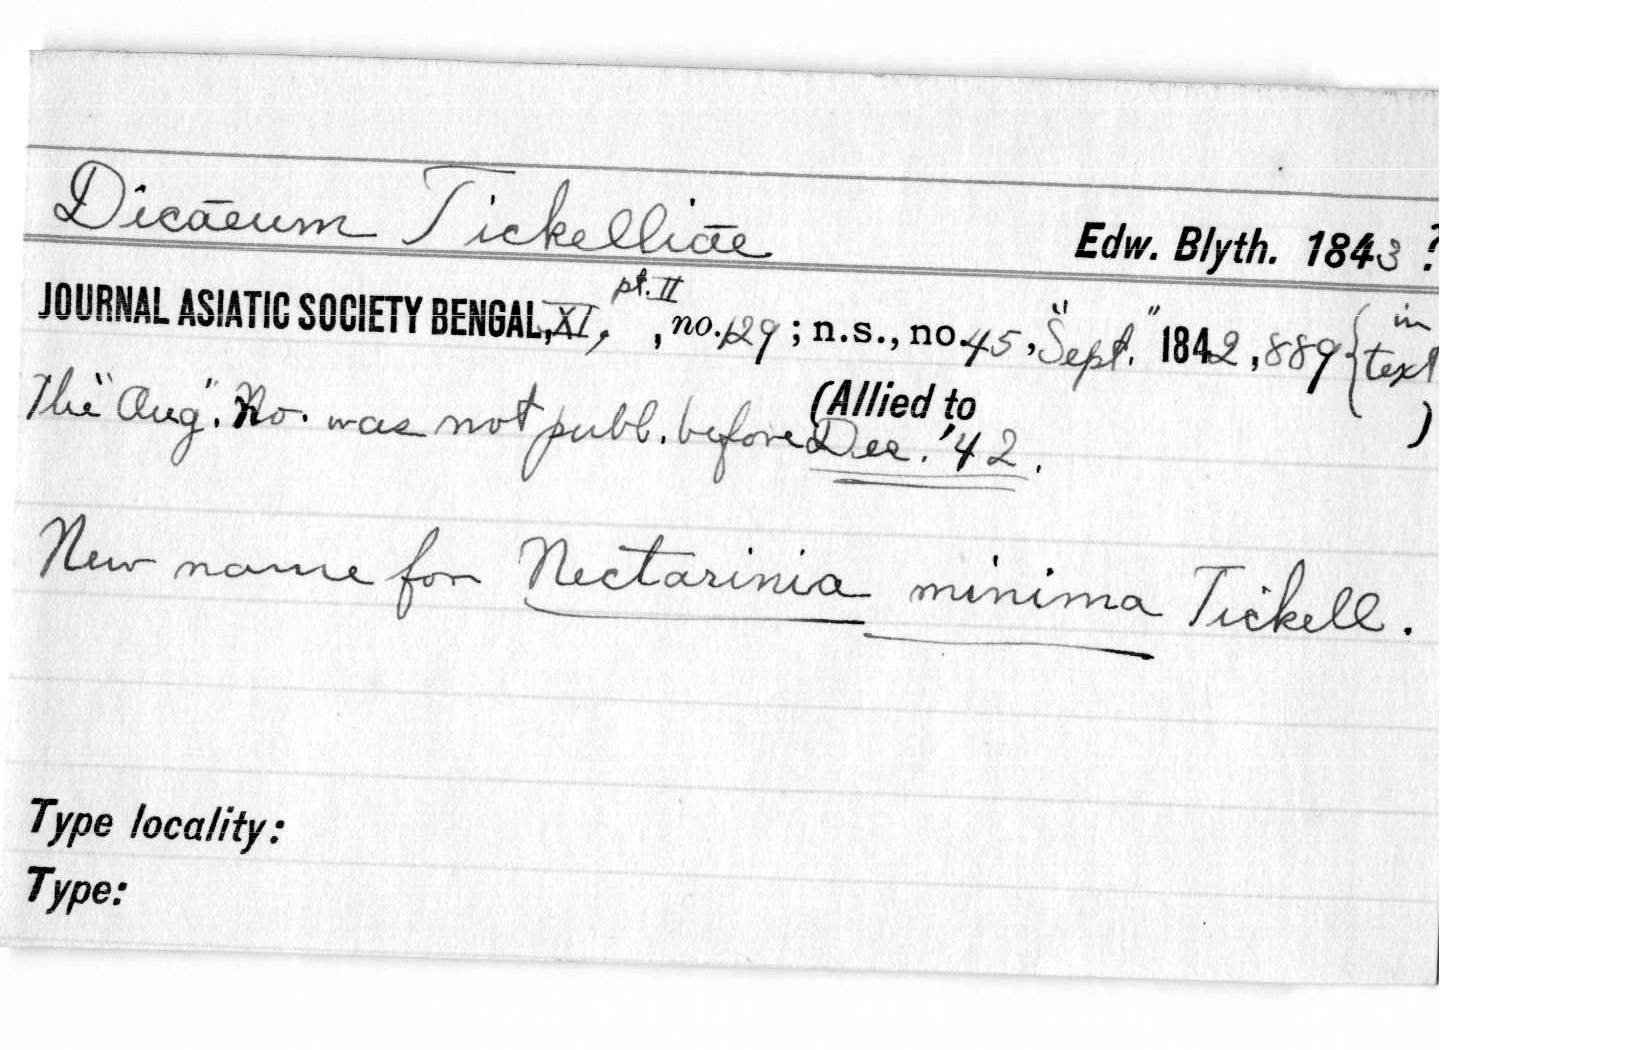 Dicāeum Tickelliāe Edw. Blyth. 1843 ?
pt. II
JOURNAL ASIATIC SOCIETY BENGAL, XI, , no. 129 ; n.s., no. 45, "Sept." 1842, 889 { in text
(Allied to )
The "Aug". No. was not publ. before Dec. '42.
New name for Nectarinia minima Tickell.
Type locality:
Type: